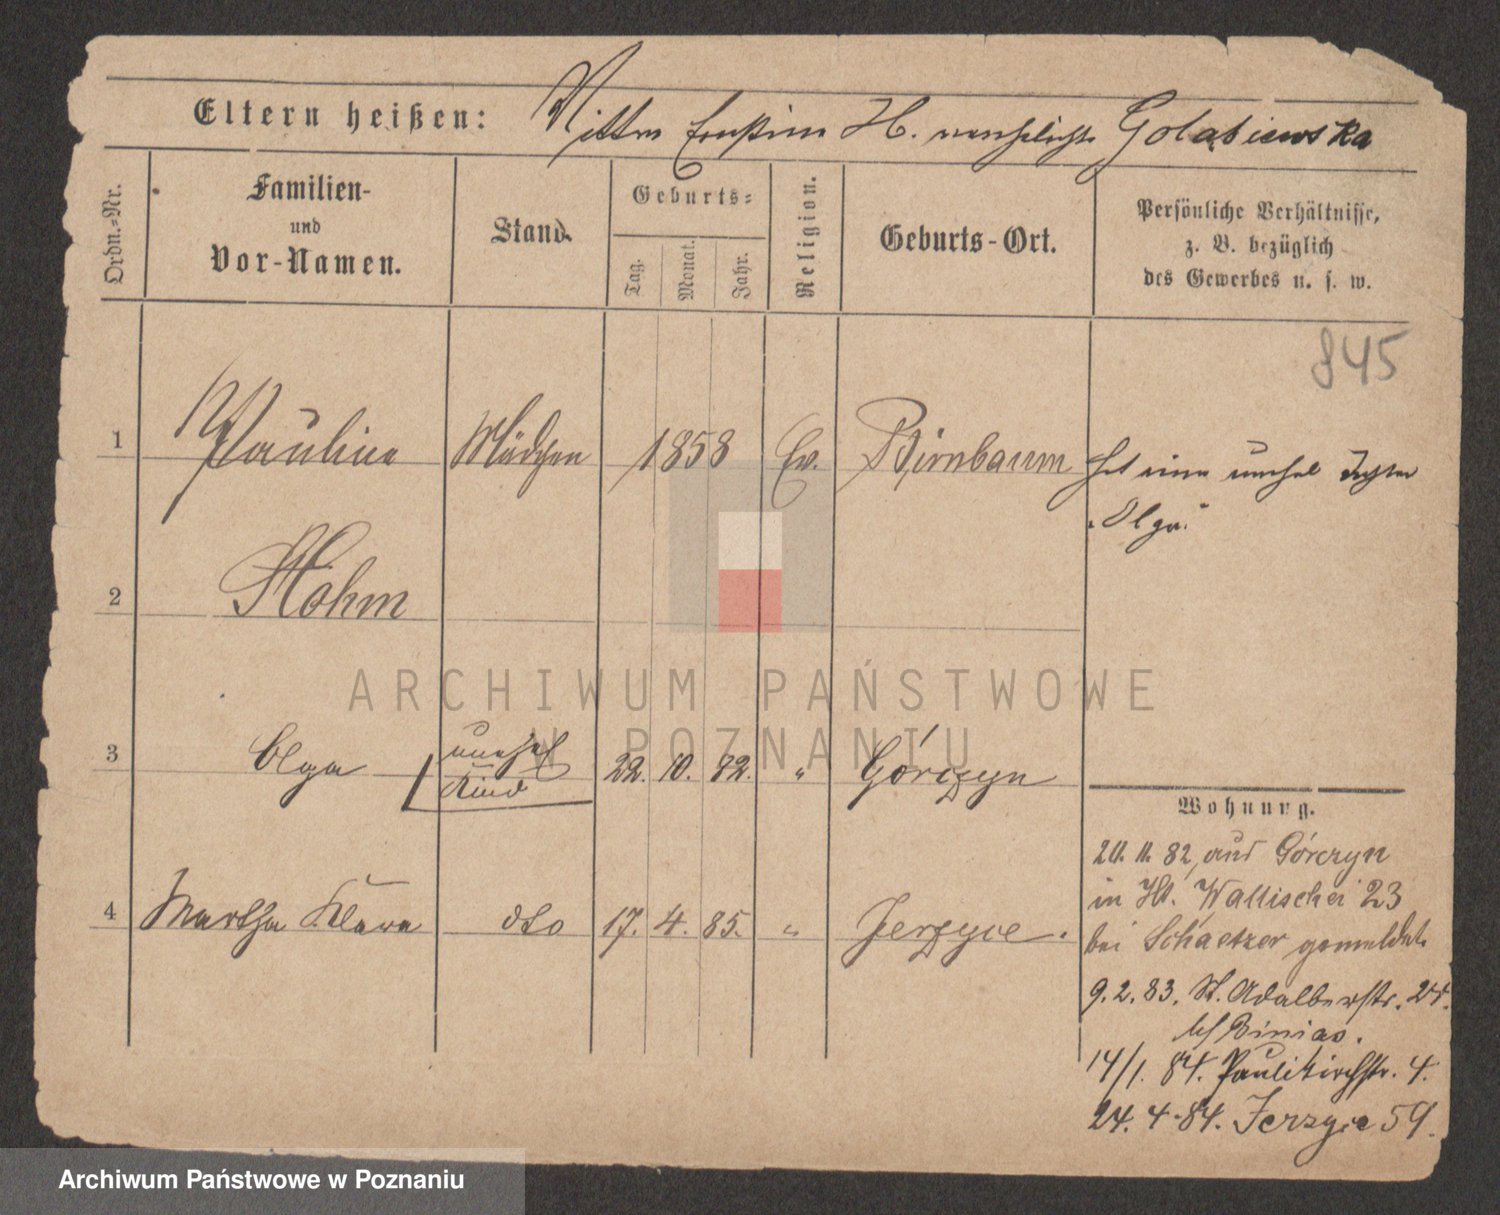 Eltern heißen: Mutter Ernstine H. verehelicht Golabiewska
Ordn.-Nr.
Familien-
und
Vor-Namen.
Stand.
Geburts-
Tag.
Monat.
Jahr.
Religion.
Geburts-Ort.
Persönliche Verhältnisse,
z. B. bezüglich
des Gewerbes u. s. w.
845
1 Pauline Mädchen 1858 Ev. Birnbaum hat eine unehel Tochter
"Olga"
2 Hohm
3 Olga unehel Kind 22. 10. 82. " Górczyn
4 Martha Klara dto 17. 4. 85. " Jerzyce.
Wohnung.
20. 11. 82, aus Górczyn
in Wallischei 23
bei Schaetzer gemeldet
9. 2. 83. St. Adalbertstr.
bei Binias.
14/1. 84. Paulikirchstr. 4.
24. 4. 84. Jerzyce 59.
ARCHIWUM PAŃSTWOWE
W POZNANIU
Archiwum Państwowe w Poznaniu